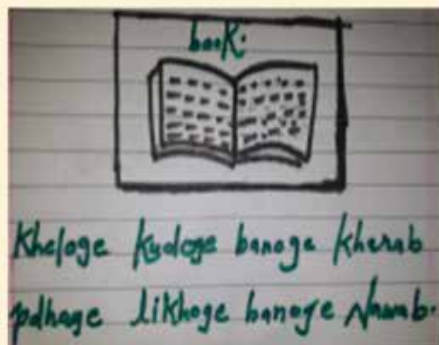 book.
Kheloge kudoge banoge kharab
pdhoge likhoge banoge Nawab.